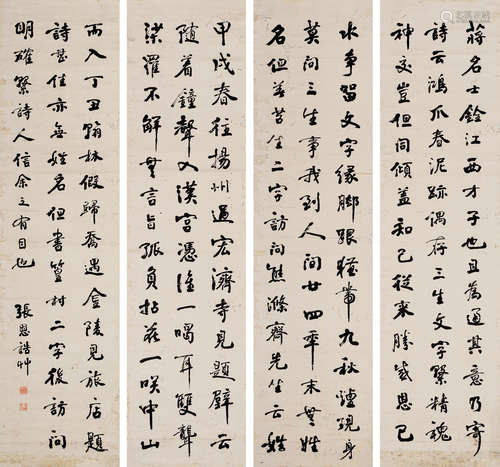 蔣名士銓江西才子也且為通其意乃寄
詩云鴻爪春泥跡偶存三生文字繫精魂
神交豈但同傾蓋知己從來勝感恩已
水爭留文字緣腳跟猶帶九秋煙現身
莫問三生事我到人間廿四年末無姓
名但著苕生二字訪問熊滌齋先生云姓
甲戌春往揚州過宏濟寺見題壁云
隨着鐘聲入漢宮憑誰一喝耳雙聾
羅不解無言旨孤負拈花一笑中山
而入丁丑翰林假歸喬遇金陵見旅店題
詩甚佳亦無姓名但書篁村二字後訪問
明確繫詩人信余之有目也
張恩誥艸